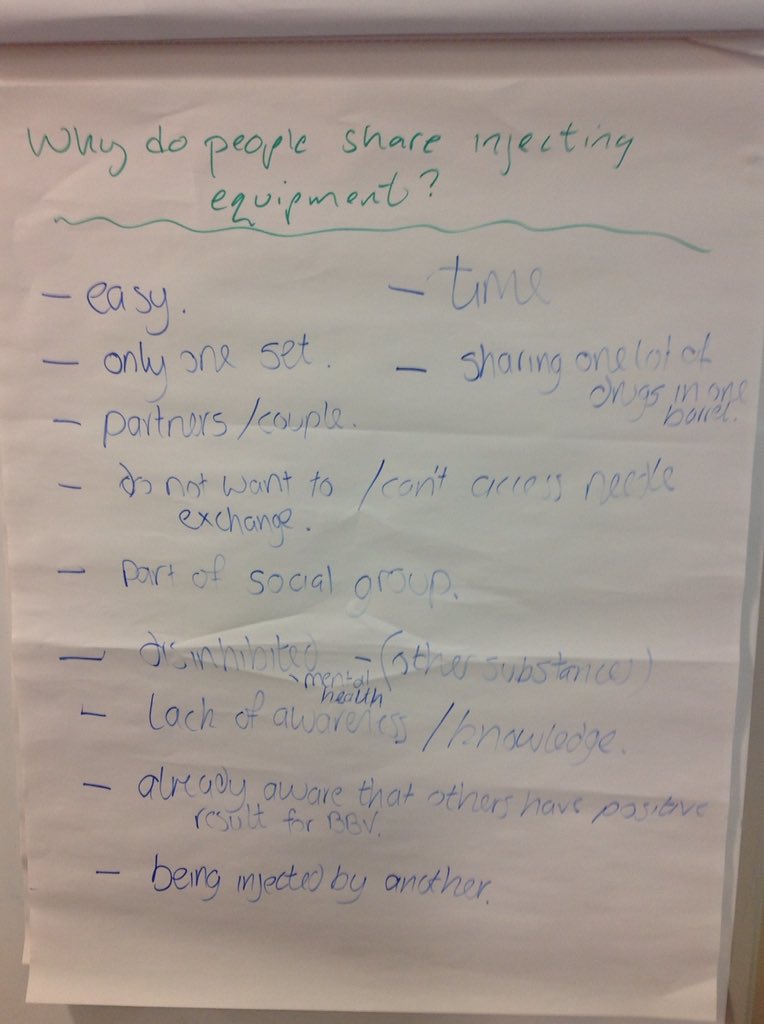 Why do people share injecting
equipment?
- easy.
- time
- only one set.
- sharing one lot of
drugs in one
barrel.
- partners/couple.
- do not want to /can't access needle
exchange.
- part of social group.
- disinhibited - (other substances)
- mental
health
- lack of awareness /knowledge.
- already aware that others have positive
result for BBV.
- being injected by another.